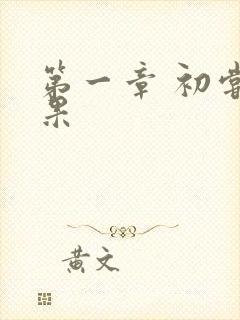 第一章 初尝
果
黄文